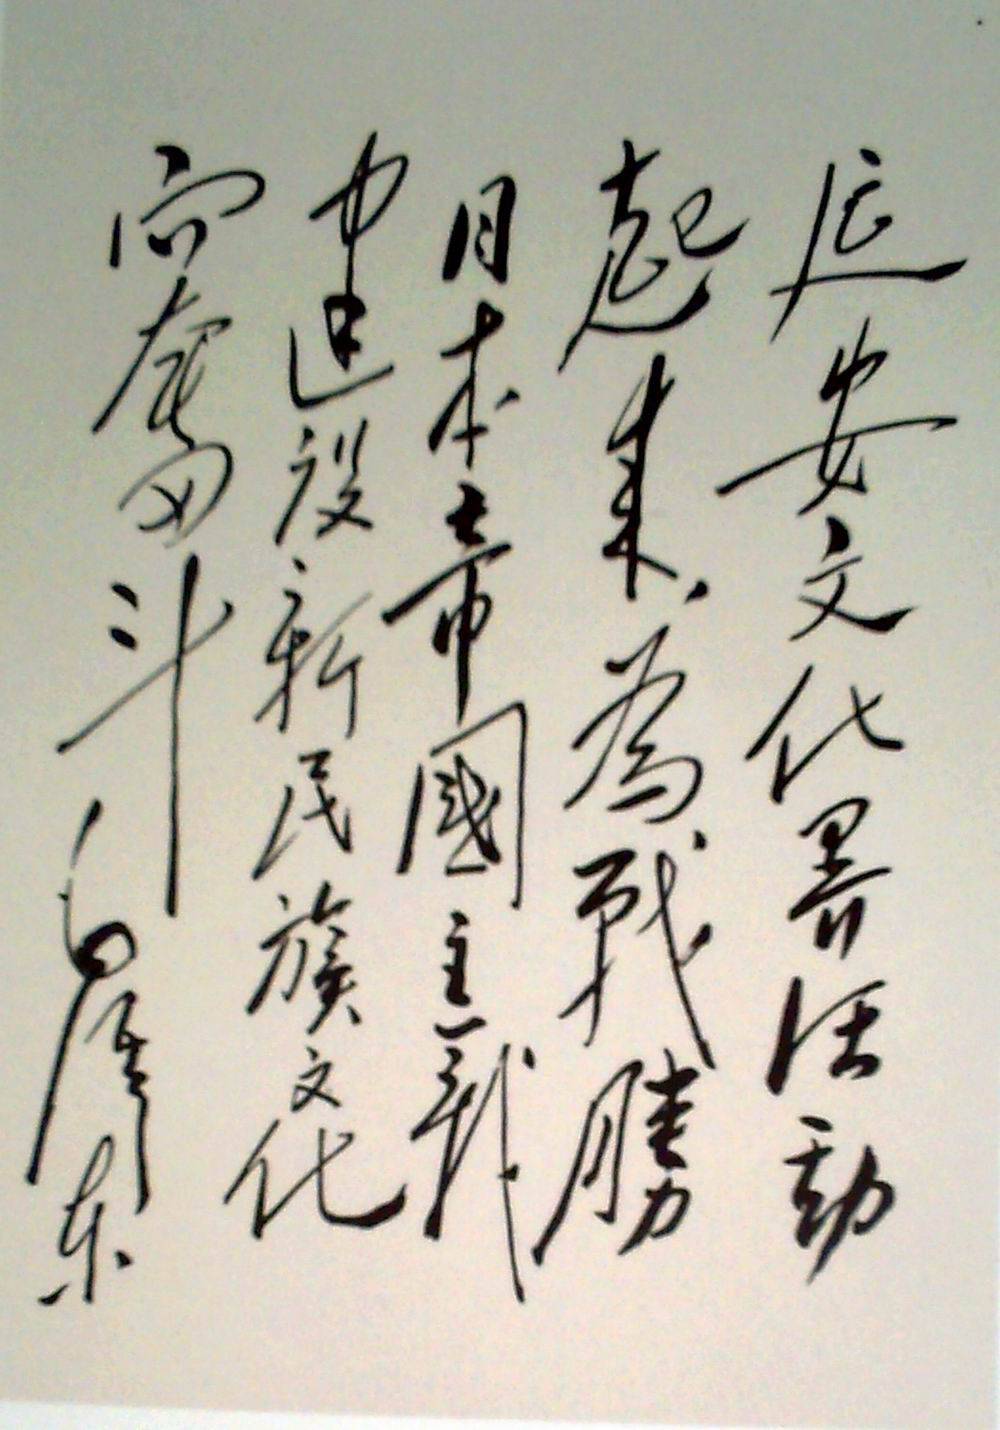 延安文化界活動
起来，為戰勝
日本帝國主義
建設新民族文化
而奮斗 毛澤东